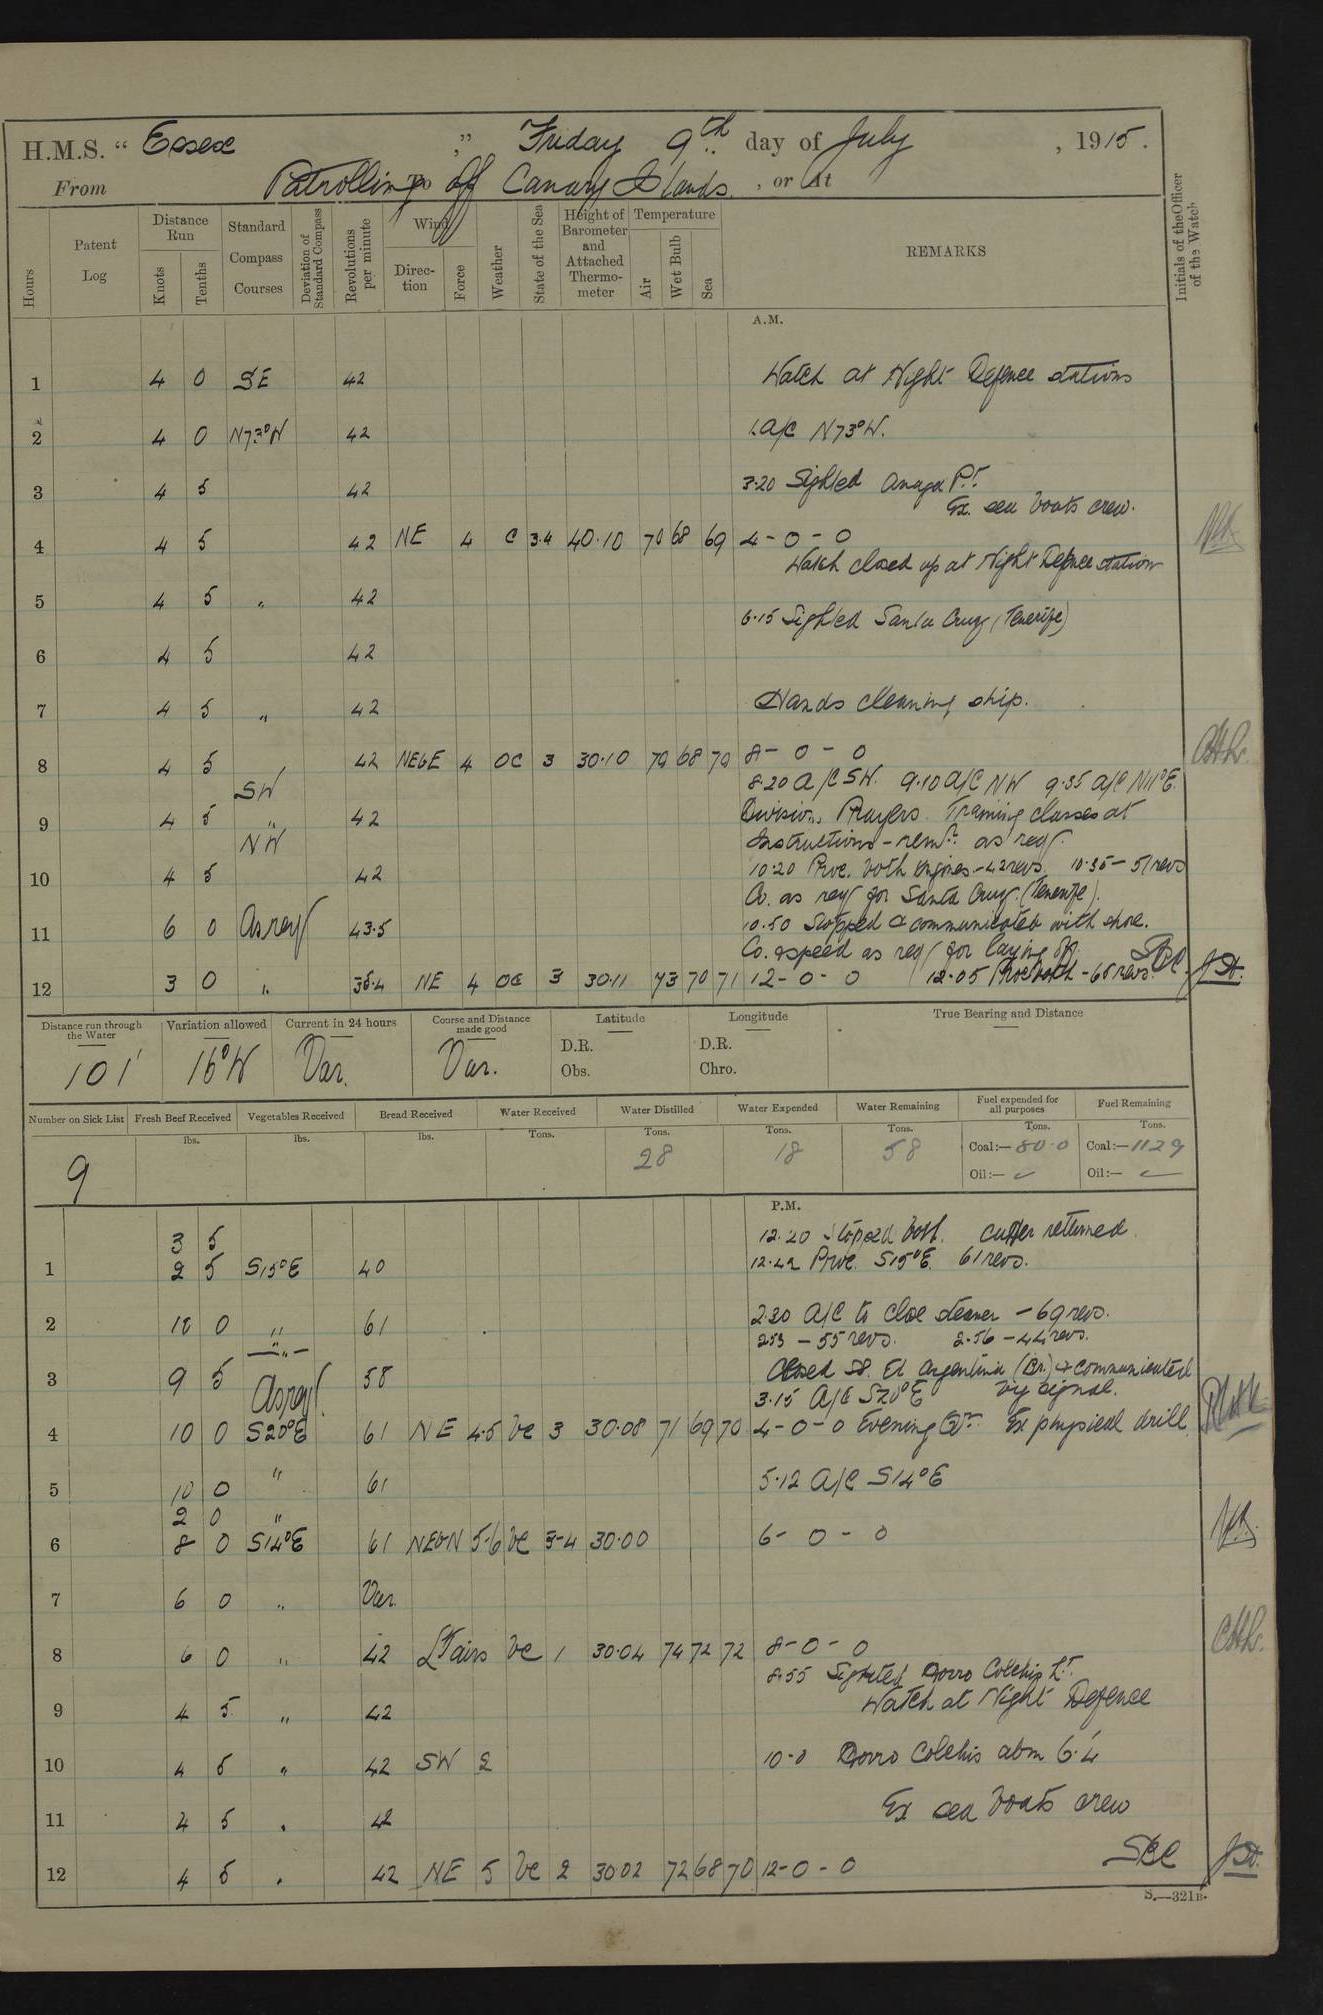 H.M.S. " Essex " Friday 9th day of July , 1915.
From Patrolling To off Canary Islands , or At
Hours
Patent Log
Distance Run
Knots
Tenths
Standard Compass Courses
Deviation of Standard Compass
Revolutions per minute
Wind
Direction
Force
Weather
State of the Sea
Height of Barometer and Attached Thermometer
Temperature
Air
Wet Bulb
Sea
REMARKS
Initials of the Officer of the Watch
A.M.
1 4 0 SE 42 Watch at Night Defence stations
2 4 0 N73°W 42 1. A/C N73°W.
3 4 5 42 3.20 Sighted Anaga Pt.
Ex. sea boats crew.
4 4 5 42 NE 4 C 3.4 40.10 70 68 69 4-0-0
Watch closed up at Night Defence station
5 4 5 " 42
6.15 Sighted Santa Cruz (Tenerife)
6 4 5 42
7 4 5 " 42 Hands cleaning ship.
8 4 5 42 NEbE 4 OC 3 30.10 70 68 70 8-0-0
SW 8.20 A/C SW. 9.10 A/C NW 9.35 A/C N11°E.
9 4 5 " 42 Divisions Prayers. Training classes at
NW Instructions - remdr. as req.
10 4 5 42 10.20 Proc. both engines - 42 revs. 10.35 - 51 revs
Co. as req for Santa Cruz. (Tenerife).
11 6 0 As req 43.5 10.50 Stopped & communicated with shore.
Co. & speed as req for laying off.
12 3 0 " 35.4 NE 4 OC 3 30.11 73 70 71 12-0-0 12.05 Proc both - 65 revs.
Distance run through the Water
Variation allowed
Current in 24 hours
Course and Distance made good
Latitude
Longitude
True Bearing and Distance
101' 16°W Var. Var. D.R. D.R.
Obs. Chro.
Number on Sick List
Fresh Beef Received
Vegetables Received
Bread Received
Water Received
Water Distilled
Water Expended
Water Remaining
Fuel expended for all purposes
Fuel Remaining
lbs. lbs. lbs. Tons. Tons. Tons. Tons. Tons. Tons.
9 28 18 58 Coal:— 80.0 Coal:— 1129
Oil:— Oil:—
P.M.
3 5 12.20 Stopped both. Cutter returned.
1 2 5 S15°E 40 12.42 Proc. S15°E. 61 revs.
2 10 0 " 61 2.30 A/C to close steamer - 69 revs.
" 2.53 - 55 revs. 2.56 - 44 revs.
3 9 5 58 Closed SS. El Argentina (Br.) & communicated
As req. 3.15 A/C S20°E by signal.
4 10 0 S20°E 61 NE 4.5 bc 3 30.08 71 69 70 4-0-0 Evening Qrs. Ex physical drill.
5 10 0 " 61 5.12 A/C S14°E
2 0 "
6 8 0 S14°E 61 NEbN 5-6 bc 3-4 30.00 6-0-0
7 6 0 " Var.
8 6 0 " 42 Lt airs bc 1 30.04 74 72 72 8-0-0
8.55 Sighted Morro Colchis Lt.
9 4 5 " 42 Watch at Night Defence
10 4 5 " 42 SW 2 10.0 Morro Colchis abm 6.'4
11 4 5 " 42 Ex sea boats crew
12 4 5 " 42 NE 5 bc 2 30 02 72 68 70 12-0-0
S.—321B.